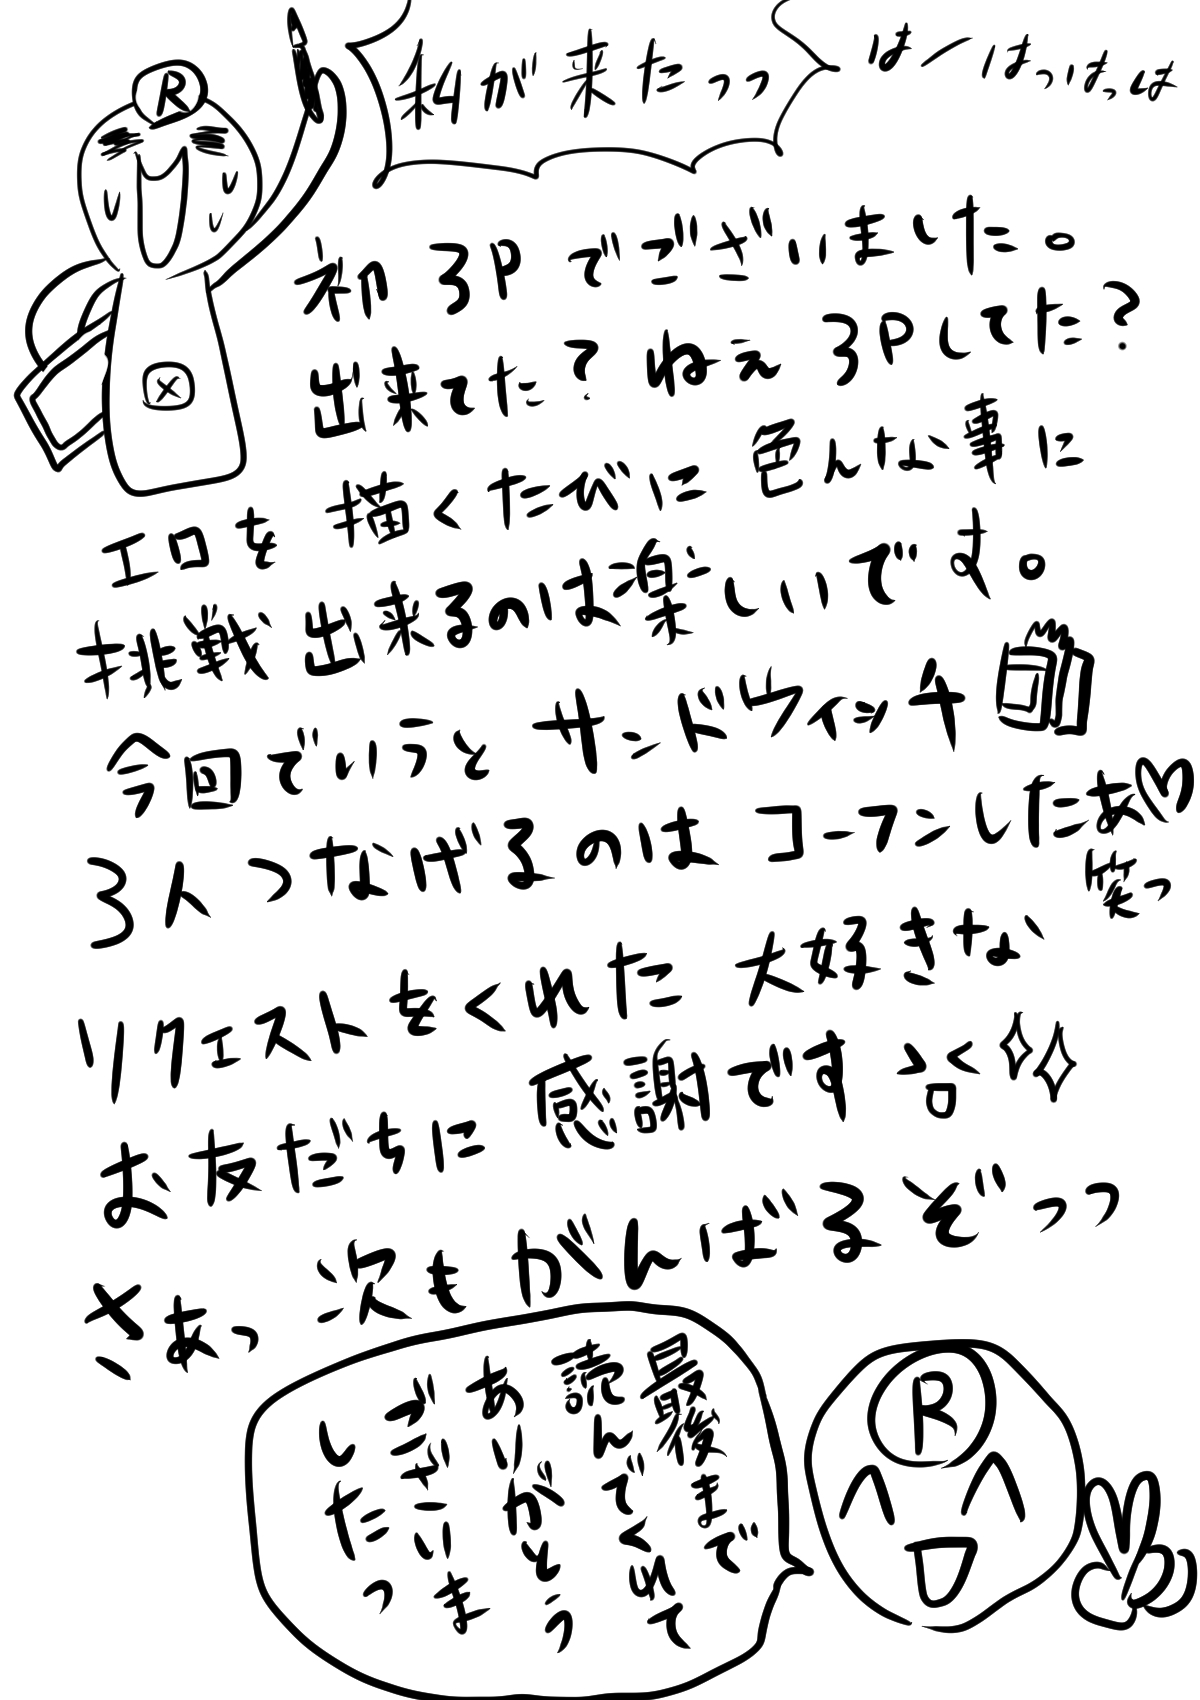 私が来たっっ
はーはっはっは
R
初3Pでございました。
出来てた?ねぇ3Pしてた?
エロを描くたびに色んな事に
挑戦出来るのは楽しいです。
今回でいうとサンドウィッチ
3人つなげるのはコーフンしたぁ♡
笑っ
リクエストをくれた大好きな
お友だちに感謝です
さあっ次もがんばるぞっっ
最後まで
読んでくれて
ありがとう
ございま
したっ
R